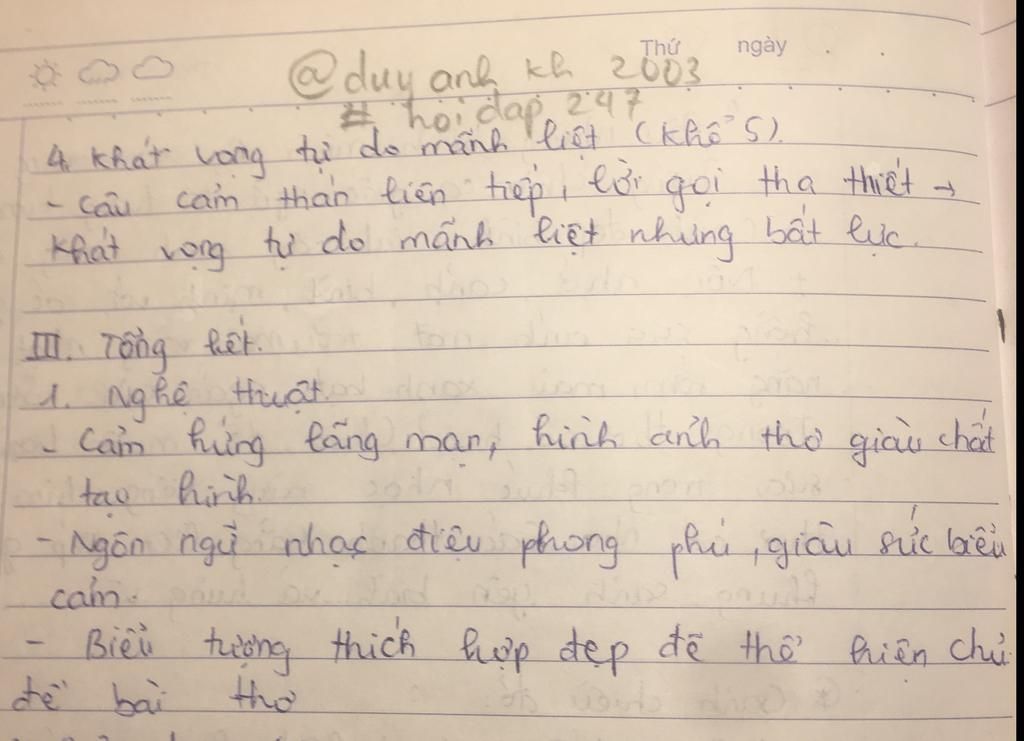 Thứ ngày
@duy anh kh 2003
# hoidap 247
4. Khát vọng tự do mãnh liệt (Khổ 5).
- Câu cảm thán liên tiếp, lời gọi tha thiết →
Khát vọng tự do mãnh liệt nhưng bất lực.
III. Tổng kết.
1. Nghệ thuật
- Cảm hứng lãng mạn, hình ảnh thơ giàu chất
tạo hình.
- Ngôn ngữ nhạc điệu phong phú, giàu sức biểu
cảm.
- Biểu tượng thích hợp đẹp đẽ thể hiện chủ
đề bài thơ